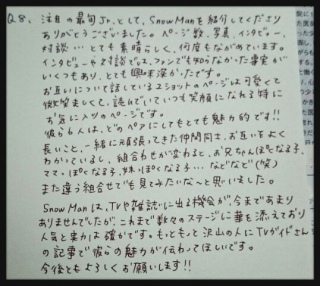 Q8、注目の最旬Jr.として、Snow Manを紹介してくださり
ありがとうございました。ページ数、写真、インタビュー、
対談…とても素晴らしく、何度もながめています。
インタビューや対談では、ファンでも知らなかった事実が
いくつもあり、とても興味深かったです。
お互いについて話している2ショットのページは可愛くて
微笑ましくて、読んでいていつも笑顔になれる特に
お気に入りのページです。
彼ら6人は、どのペアにしてもとても魅力的です!!
長いこと、一緒に頑張ってきた仲間同士、お互いをよく
わかっているし、組合わせが変わると、お兄ちゃんぽくなる子、
ママっぽくなる子、妹っぽくなる子…などなど(笑)
また違う組合せでも見てみたいな〜と思いました。
Snow Manは、TVや雑誌に出る機会が、今まであまり
ありませんでしたが、これまで数々のステージに華を添えており
人気と実力は確かです。もっともっと沢山の人にTVガイドさん
の記事で彼らの魅力が伝わってほしいです。
今後ともよろしくお願いします!!